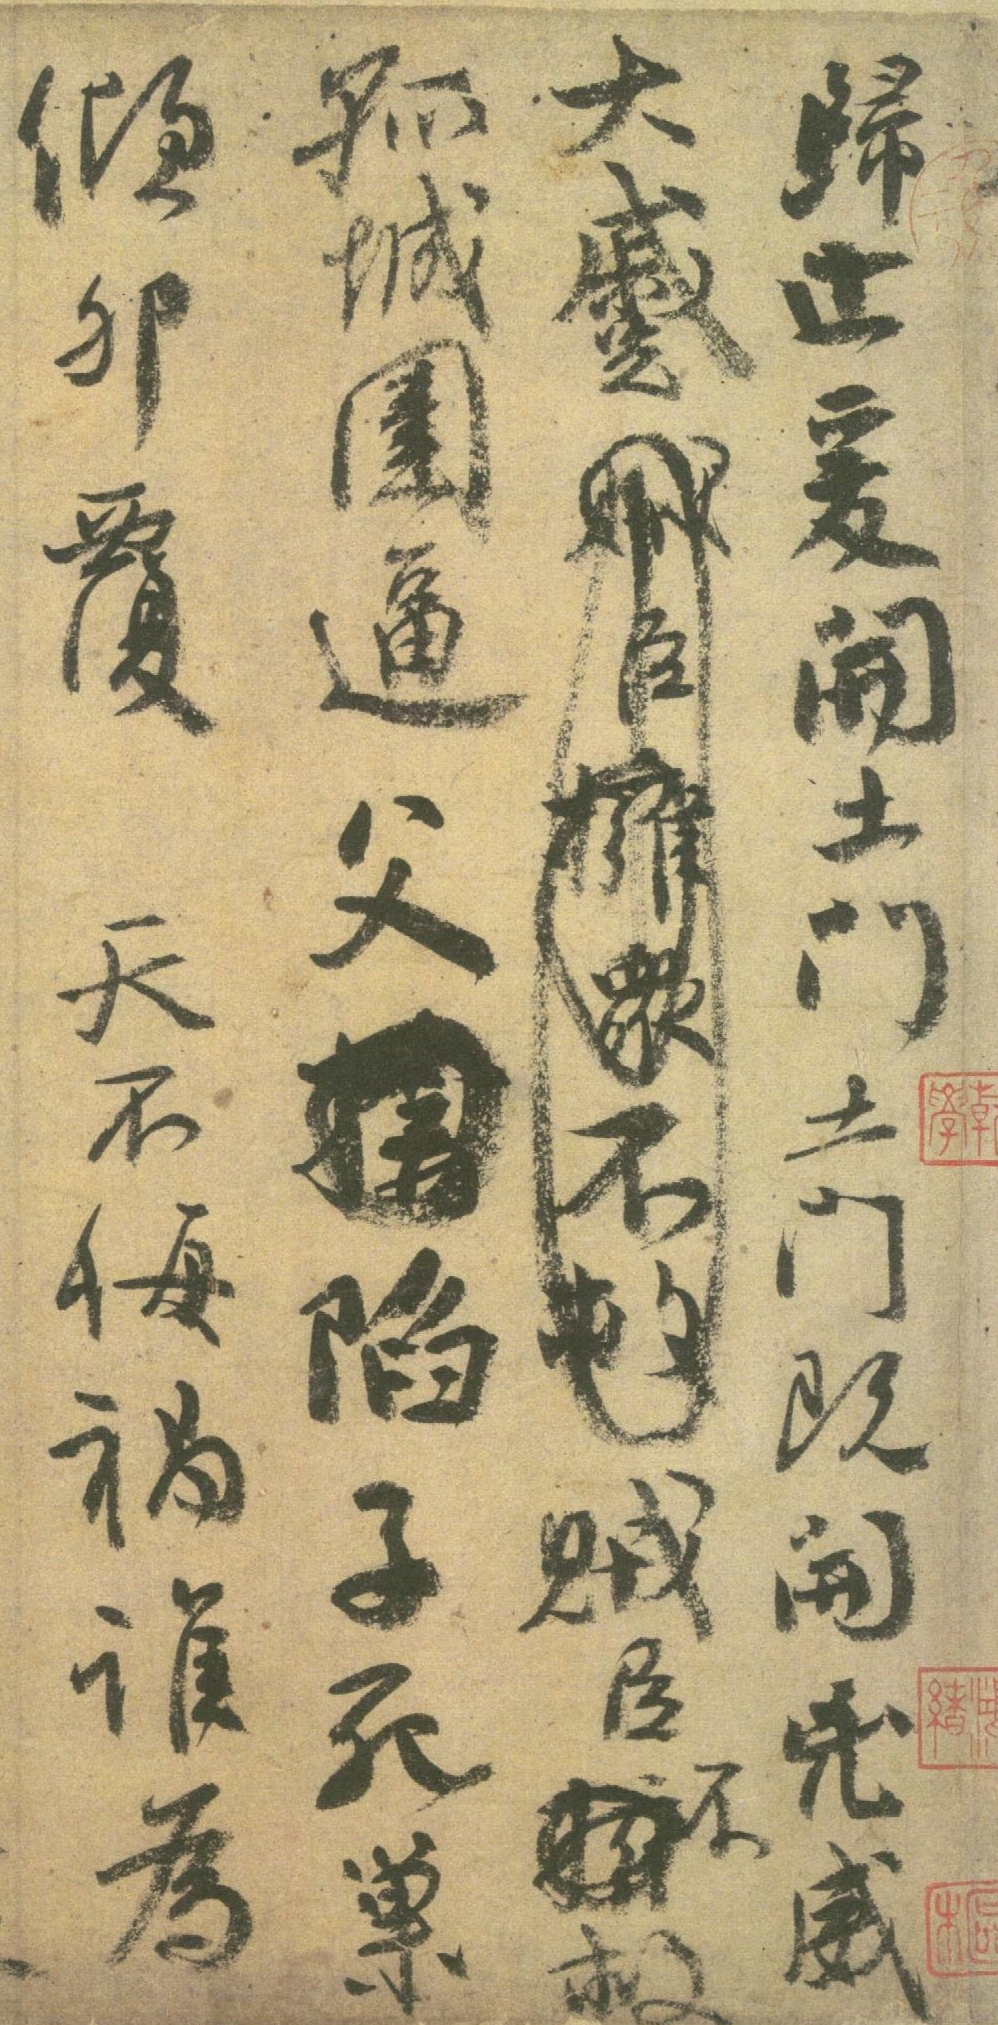 歸止爰開土門土門既開凶威
大蹙賊臣擁眾不救賊臣不救
孤城圍逼父陷子死巢
傾卵覆天不悔禍誰為